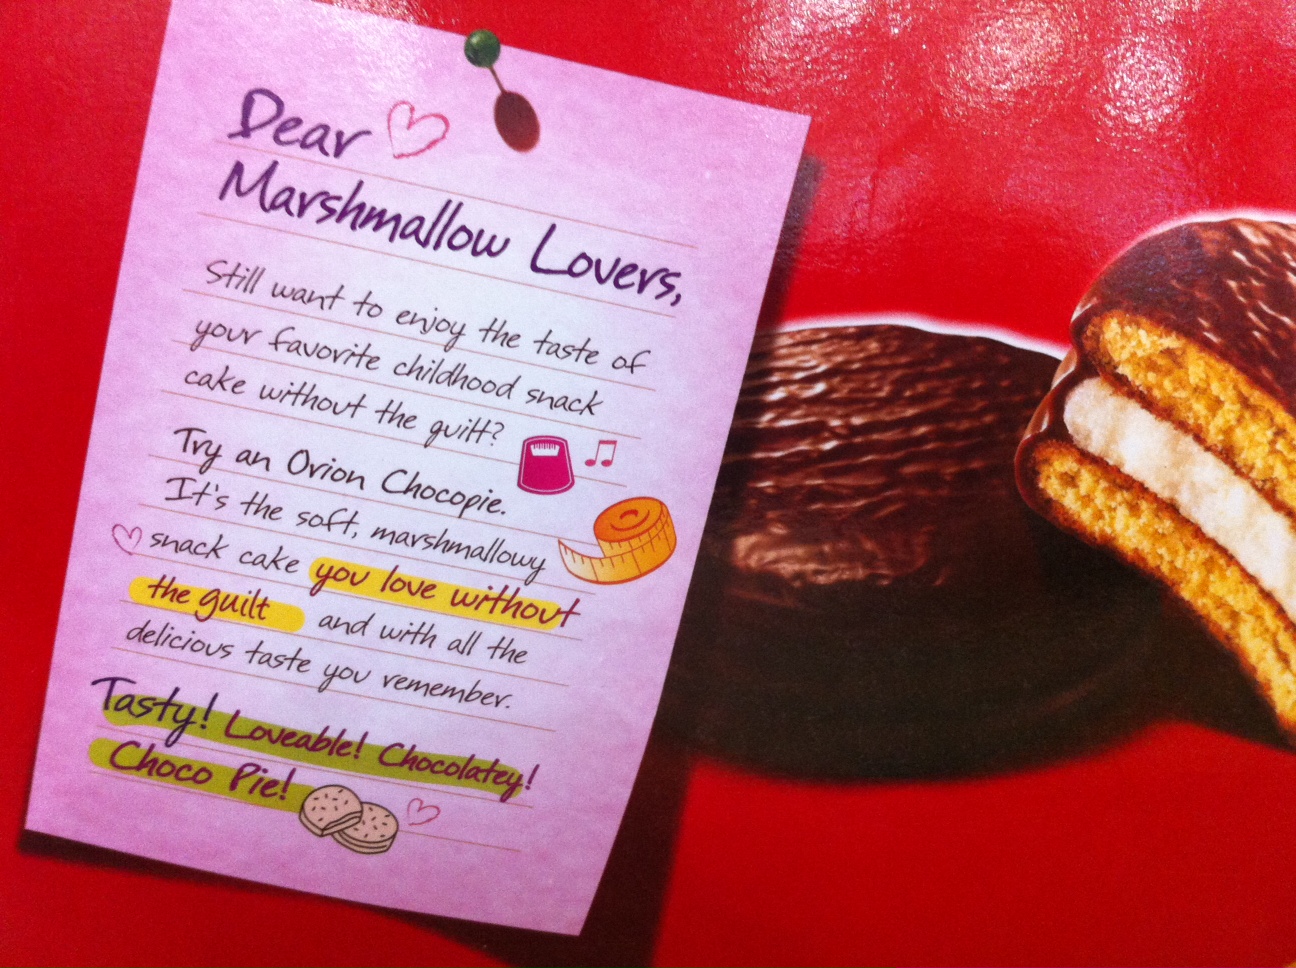 Dear
Marshmallow Lovers,
Still want to enjoy the taste of
your favorite childhood snack
cake without the guilt?
Try an Orion Chocopie.
It's the soft, marshmallowy
snack cake you love without
the guilt and with all the
delicious taste you remember.
Tasty! Loveable! Chocolatey!
Choco Pie!